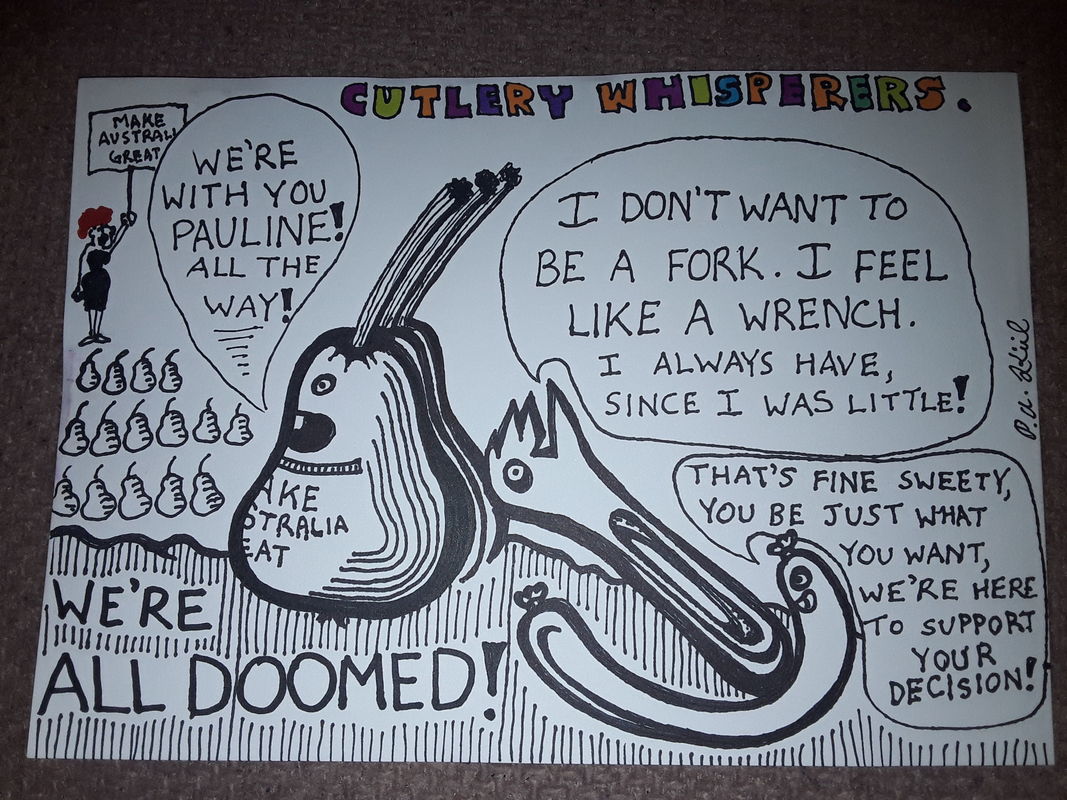 CUTLERY WHISPERERS.
MAKE
AUSTRALI
GREAT
WE'RE
WITH YOU
PAULINE!
ALL THE
WAY!
I DON'T WANT TO
BE A FORK. I FEEL
LIKE A WRENCH.
I ALWAYS HAVE,
SINCE I WAS LITTLE!
THAT'S FINE SWEETY,
YOU BE JUST WHAT
YOU WANT,
WE'RE HERE
TO SUPPORT
YOUR
DECISION!
AKE
STRALIA
EAT
WE'RE
ALL DOOMED!
P.a.